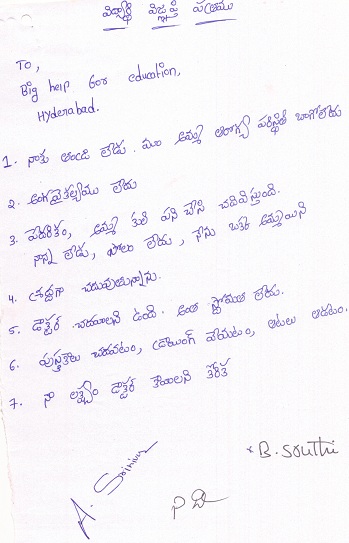 విద్యార్థి విజ్ఞప్తి పత్రము
To,
Big help for education,
Hyderabad.
1. నాకు తండ్రి లేడు. మా అమ్మ ఆరోగ్య పరిస్థితి బాగోలేదు
2. అంగవైకల్యము లేదు
3. పేదరికం, అమ్మ కూలి పని చేసి చదివిస్తుంది.
నాన్న లేడు, పొలం లేదు, నేను ఒక్కతే అమ్మాయిని
4. శ్రద్ధగా చదువుతున్నాను.
5. డాక్టర్ చదవాలని ఉంది. అంత స్తోమత లేదు.
6. పుస్తకాలు చదవటం, డ్రాయింగ్ వేయటం, ఆటలు ఆడటం.
7. నా లక్ష్యం డాక్టర్ కావాలని కోరిక
A. Srinivas
* B. Sruthi